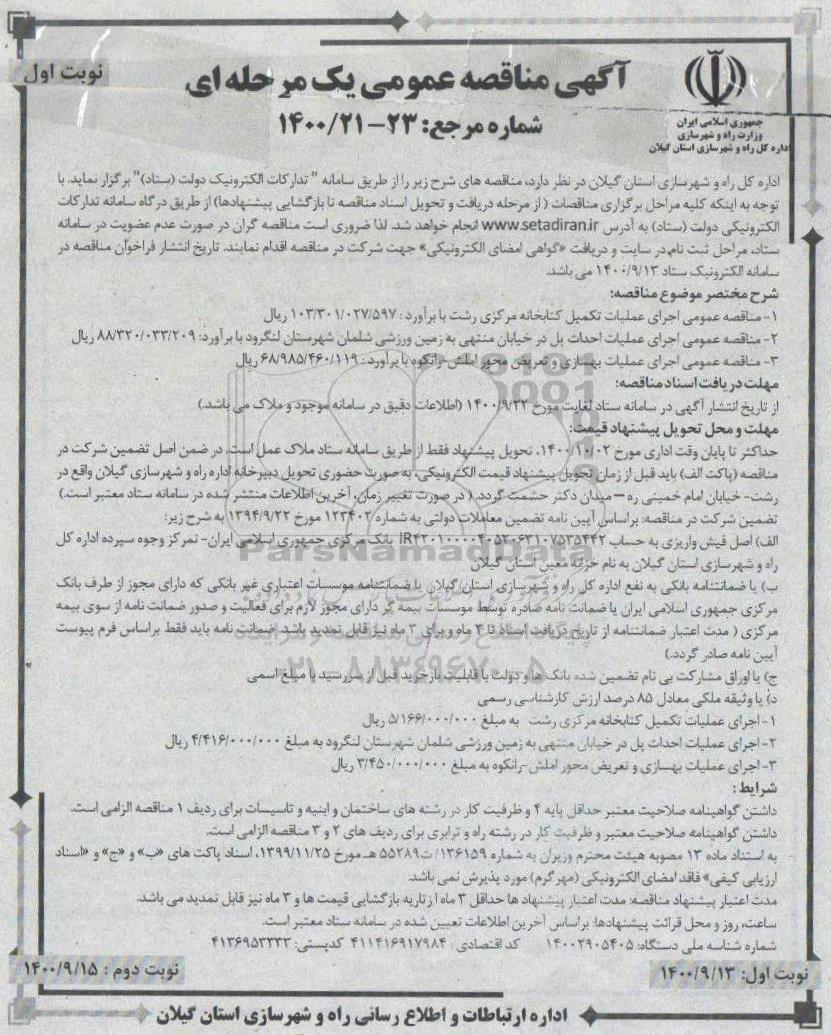 نوبت اول
آگهی مناقصه عمومی یک مرحله ای
شماره مرجع: ۲۳-۱۴۰۰/۲۱
جمهوری اسلامی ایران
وزارت راه و شهرسازی
اداره کل راه و شهرسازی استان گیلان
اداره کل راه و شهرسازی استان گیلان در نظر دارد، مناقصه های شرح زیر را از طریق سامانه " تدارکات الکترونیک دولت (ستاد)" برگزار نماید. با
توجه به اینکه کلیه مراحل برگزاری مناقصات ( از مرحله دریافت و تحویل اسناد مناقصه تا بازگشایی پیشنهادها) از طریق درگاه سامانه تدارکات
الکترونیکی دولت (ستاد) به آدرس www.setadiran.ir انجام خواهد شد. لذا ضروری است مناقصه گران در صورت عدم عضویت در سامانه
ستاد، مراحل ثبت نام در سایت و دریافت «گواهی امضای الکترونیکی» جهت شرکت در مناقصه اقدام نمایند. تاریخ انتشار فراخوان مناقصه در
سامانه الکترونیک ستاد ۱۴۰۰/۹/۱۳ می باشد.
شرح مختصر موضوع مناقصه:
۱- مناقصه عمومی اجرای عملیات تکمیل کتابخانه مرکزی رشت با برآورد : ۱۰۳/۳۰۱/۰۲۷/۵۹۷ ریال
۲- مناقصه عمومی اجرای عملیات احداث پل در خیابان منتهی به زمین ورزشی شلمان شهرستان لنگرود با برآورد: ۸۸/۳۲۰/۰۳۳/۲۰۹ ریال
۳- مناقصه عمومی اجرای عملیات بهسازی و تعریض محور املش-رانکوه با برآورد : ۶۸/۹۸۵/۴۶۰/۱۱۹ ریال
مهلت دریافت اسناد مناقصه:
از تاریخ انتشار آگهی در سامانه ستاد لغایت مورخ ۱۴۰۰/۹/۲۲ (اطلاعات دقیق در سامانه موجود و ملاک می باشد.)
مهلت و محل تحویل پیشنهاد قیمت:
حداکثر تا پایان وقت اداری مورخ ۱۴۰۰/۱۰/۰۲، تحویل پیشنهاد فقط از طریق سامانه ستاد ملاک عمل است. در ضمن اصل تضمین شرکت در
مناقصه (پاکت الف) باید قبل از زمان تحویل پیشنهاد قیمت الکترونیکی، به صورت حضوری تحویل دبیرخانه اداره راه و شهرسازی گیلان واقع در
رشت- خیابان امام خمینی ره – میدان دکتر حشمت گردد. ( در صورت تغییر زمان، آخرین اطلاعات منتشر شده در سامانه ستاد معتبر است.)
تضمین شرکت در مناقصه: براساس آیین نامه تضمین معاملات دولتی به شماره ۱۲۳۴۰۲ مورخ ۱۳۹۴/۹/۲۲ به شرح زیر:
الف) اصل فیش واریزی به حساب IR۴۲۰۱۰۰۰۰۴۰۵۲۰۶۳۱۰۷۵۳۵۴۴۲ بانک مرکزی جمهوری اسلامی ایران- تمرکز وجوه سپرده اداره کل
راه و شهرسازی استان گیلان به نام خزانه معین استان گیلان
ب) یا ضمانتنامه بانکی به نفع اداره کل راه و شهرسازی استان گیلان یا ضمانتنامه موسسات اعتباری غیر بانکی که دارای مجوز از طرف بانک
مرکزی جمهوری اسلامی ایران یا ضمانت نامه صادره توسط موسسات بیمه گر دارای مجوز لازم برای فعالیت و صدور ضمانت نامه از سوی بیمه
مرکزی ( مدت اعتبار ضمانتنامه از تاریخ دریافت اسناد تا ۳ ماه و برای ۳ ماه نیز قابل تمدید باشد. ضمانت نامه باید فقط براساس فرم پیوست
آیین نامه صادر گردد.)
ج) یا اوراق مشارکت بی نام تضمین شده بانک ها و دولت با قابلیت بازخرید قبل از سررسید با مبلغ اسمی
د) یا وثیقه ملکی معادل ۸۵ درصد ارزش کارشناسی رسمی
۱- اجرای عملیات تکمیل کتابخانه مرکزی رشت به مبلغ ۵/۱۶۶/۰۰۰/۰۰۰ ریال
۲- اجرای عملیات احداث پل در خیابان منتهی به زمین ورزشی شلمان شهرستان لنگرود به مبلغ ۴/۴۱۶/۰۰۰/۰۰۰ ریال
۳- اجرای عملیات بهسازی و تعریض محور املش-رانکوه به مبلغ ۳/۴۵۰/۰۰۰/۰۰۰ ریال
شرایط :
داشتن گواهینامه صلاحیت معتبر حداقل پایه ۴ و ظرفیت کار در رشته های ساختمان و ابنیه و تاسیسات برای ردیف ۱ مناقصه الزامی است.
داشتن گواهینامه صلاحیت معتبر و ظرفیت کار در رشته راه و ترابری برای ردیف های ۲ و ۳ مناقصه الزامی است.
به استناد ماده ۱۳ مصوبه هیئت محترم وزیران به شماره ۱۳۶۱۵۹/ت۵۵۲۸۹هـ مورخ ۱۳۹۹/۱۱/۲۵، اسناد پاکت های «ب» و «ج» و «اسناد
ارزیابی کیفی» فاقد امضای الکترونیکی (مهر گرم) مورد پذیرش نمی باشد.
مدت اعتبار پیشنهاد مناقصه: مدت اعتبار پیشنهاد ها حداقل ۳ ماه از تاریه بازگشایی قیمت ها و ۳ ماه نیز قابل تمدید می باشد.
ساعت، روز و محل قرائت پیشنهادها: براساس آخرین اطلاعات تعیین شده در سامانه ستاد معتبر است.
شماره شناسه ملی دستگاه: ۱۴۰۰۲۹۰۵۴۰۵ کد اقتصادی : ۴۱۱۴۱۶۹۱۷۹۸۴ کدپستی: ۴۱۳۶۹۵۳۳۳۳
نوبت اول: ۱۴۰۰/۹/۱۳
نوبت دوم : ۱۴۰۰/۹/۱۵
اداره ارتباطات و اطلاع رسانی راه و شهرسازی استان گیلان
ParsNamadData
۰۲۱-۸۸۳۴۹۶۷۰-۵